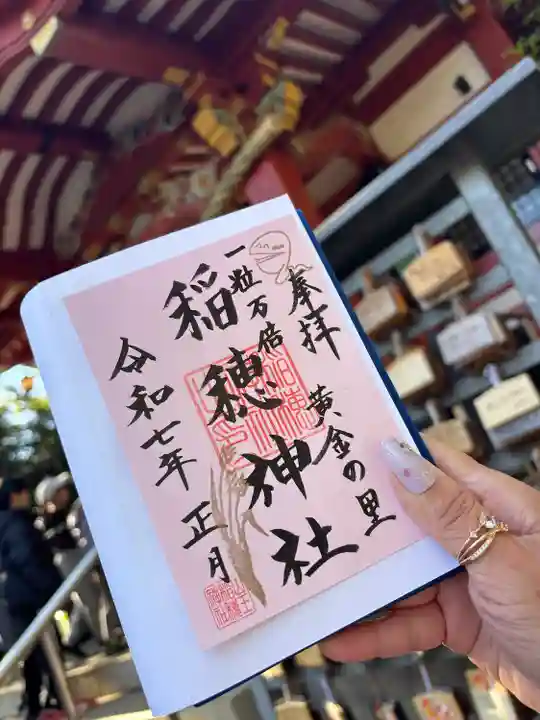 奉拝
黄金の里
一粒万倍
稲穂神社
令和七年 正月